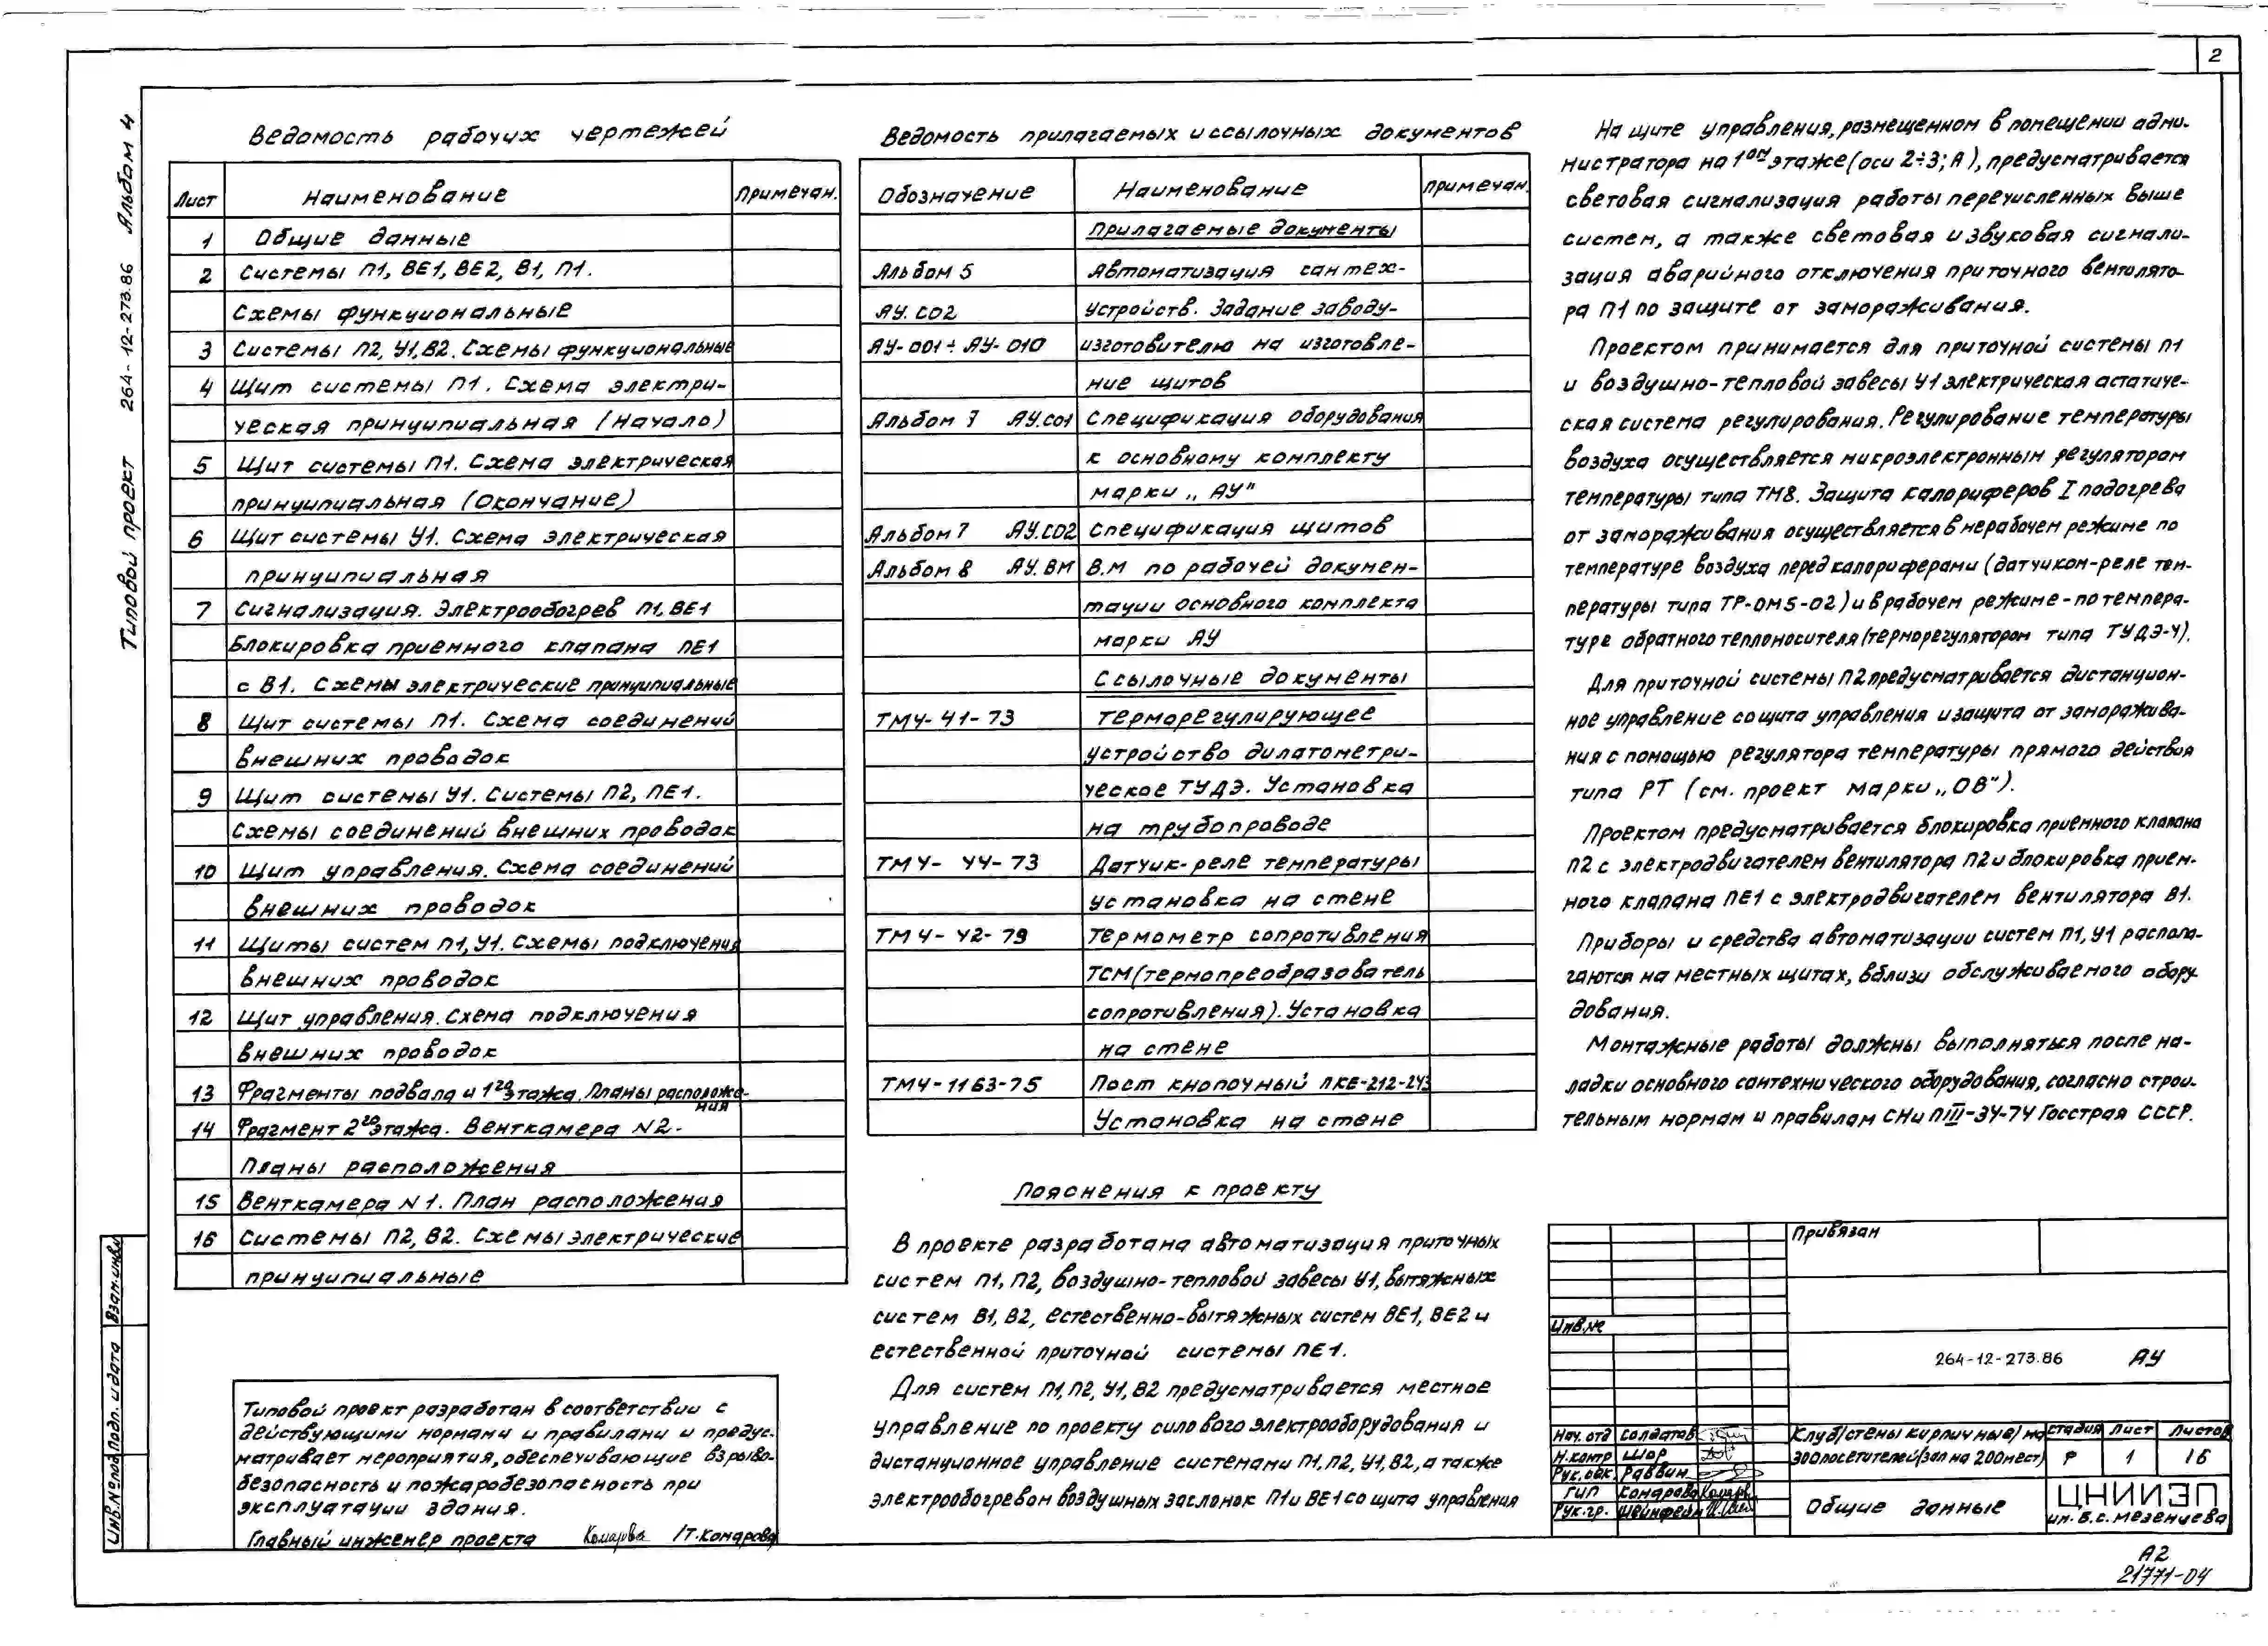 2
Типовой проект 264-12-273.86 Альбом 4
Ведомость рабочих чертежей
Лист Наименование Примечан.
1 Общие данные
2 Системы П1, ВЕ1, ВЕ2, В1, П1.
Схемы функциональные
3 Системы П2, У1, В2. Схемы функциональные
4 Щит системы П1. Схема электри-
ческая принципиальная (Начало)
5 Щит системы П1. Схема электрическая
принципиальная (Окончание)
6 Щит системы У1. Схема электрическая
принципиальная
7 Сигнализация. Электрообогрев П1, ВЕ1
Блокировка приемного клапана ПЕ1
с В1. Схемы электрические принципиальные
8 Щит системы П1. Схема соединений
внешних проводок
9 Щит системы У1. Системы П2, ПЕ1.
Схемы соединений внешних проводок
10 Щит управления. Схема соединений
внешних проводок
11 Щиты систем П1, У1. Схемы подключения
внешних проводок
12 Щит управления. Схема подключения
внешних проводок
13 Фрагменты подвала и 1го этажа. Планы расположе-
ния
14 Фрагмент 2го этажа. Венткамера N2.
Планы расположения
15 Венткамера N1. План расположения
16 Системы П2, В2. Схемы электрические
принципиальные
Типовой проект разработан в соответствии с
действующими нормами и правилами и предус-
матривает мероприятия, обеспечивающие взрыво-
безопасность и пожаробезопасность при
эксплуатации здания.
Главный инженер проекта Комарова /Т.Комарова
Ведомость прилагаемых и ссылочных документов
Обозначение Наименование Примечан.
Прилагаемые документы
Альбом 5 Автоматизация сантех-
АУ.СО2 устройств. Задание заводу-
АУ-001÷АУ-010 изготовителю на изготовле-
ние щитов
Альбом 7 АУ.СО1 Спецификация оборудования
к основному комплекту
марки „АУ"
Альбом 7 АУ.СО2 Спецификация щитов
Альбом 8 АУ.ВМ В.М по рабочей докумен-
тации основного комплекта
марки АУ
Ссылочные документы
ТМ4-41-73 Терморегулирующее
устройство дилатометри-
ческое ТУДЭ. Установка
на трубопроводе
ТМ4-44-73 Датчик-реле температуры
установка на стене
ТМ4-42-79 Термометр сопротивления
ТСМ(термопреобразователь
сопротивления). Установка
на стене
ТМ4-1163-75 Пост кнопочный ПКЕ-212-2У3
Установка на стене
Пояснения к проекту
В проекте разработана автоматизация приточных
систем П1, П2, воздушно-тепловой завесы У1, вытяжных
систем В1, В2, естественно-вытяжных систем ВЕ1, ВЕ2 и
естественной приточной системы ПЕ1.
Для систем П1, П2, У1, В2 предусматривается местное
управление по проекту силового электрооборудования и
дистанционное управление системами П1, П2, У1, В2, а также
электрообогревом воздушных заслонок П1 и ВЕ1 со щита управления
На щите управления, размещенном в помещении адми-
нистратора на 1ом этаже (оси 2÷3; А), предусматривается
световая сигнализация работы перечисленных выше
систем, а также световая и звуковая сигнали-
зация аварийного отключения приточного вентилято-
ра П1 по защите от замораживания.
Проектом принимается для приточной системы П1
и воздушно-тепловой завесы У1 электрическая астатиче-
ская система регулирования. Регулирование температуры
воздуха осуществляется микроэлектронным регулятором
температуры типа ТМ8. Защита калориферов I подогрева
от замораживания осуществляется в нерабочем режиме по
температуре воздуха перед калориферами (датчиком-реле тем-
пературы типа ТР-ОМ5-02) и в рабочем режиме - по темпера-
туре обратного теплоносителя (терморегулятором типа ТУДЭ-4).
Для приточной системы П2 предусматривается дистанцион-
ное управление со щита управления и защита от заморажива-
ния с помощью регулятора температуры прямого действия
типа РТ (см. проект марки „ОВ").
Проектом предусматривается блокировка приемного клапана
П2 с электродвигателем вентилятора П2 и блокировка прием-
ного клапана ПЕ1 с электродвигателем вентилятора В1.
Приборы и средства автоматизации систем П1, У1 распола-
гаются на местных щитах, вблизи обслуживаемого обору
дования.
Монтажные работы должны выполняться после на-
ладки основного сантехнического оборудования, согласно строи-
тельным нормам и правилам СНиПIII-34-74 Госстрая СССР.
Привязан
Инв.№
264-12-273.86 АУ
Нач.отд Солдатов
Н.контр Шор
Рук.обк. Раввин
ГИП Комарова
Рук.гр. Шейнфейн
Клуб/стены кирпичные/на
300посетителей/зал на 200мест/
Стадия Лист Листов
Р 1 16
Общие данные
ЦНИИЭП
им. Б.С. Мезенцева
Инв.№ подл. Подп. и дата Взам.инв.№
А2
21771-04